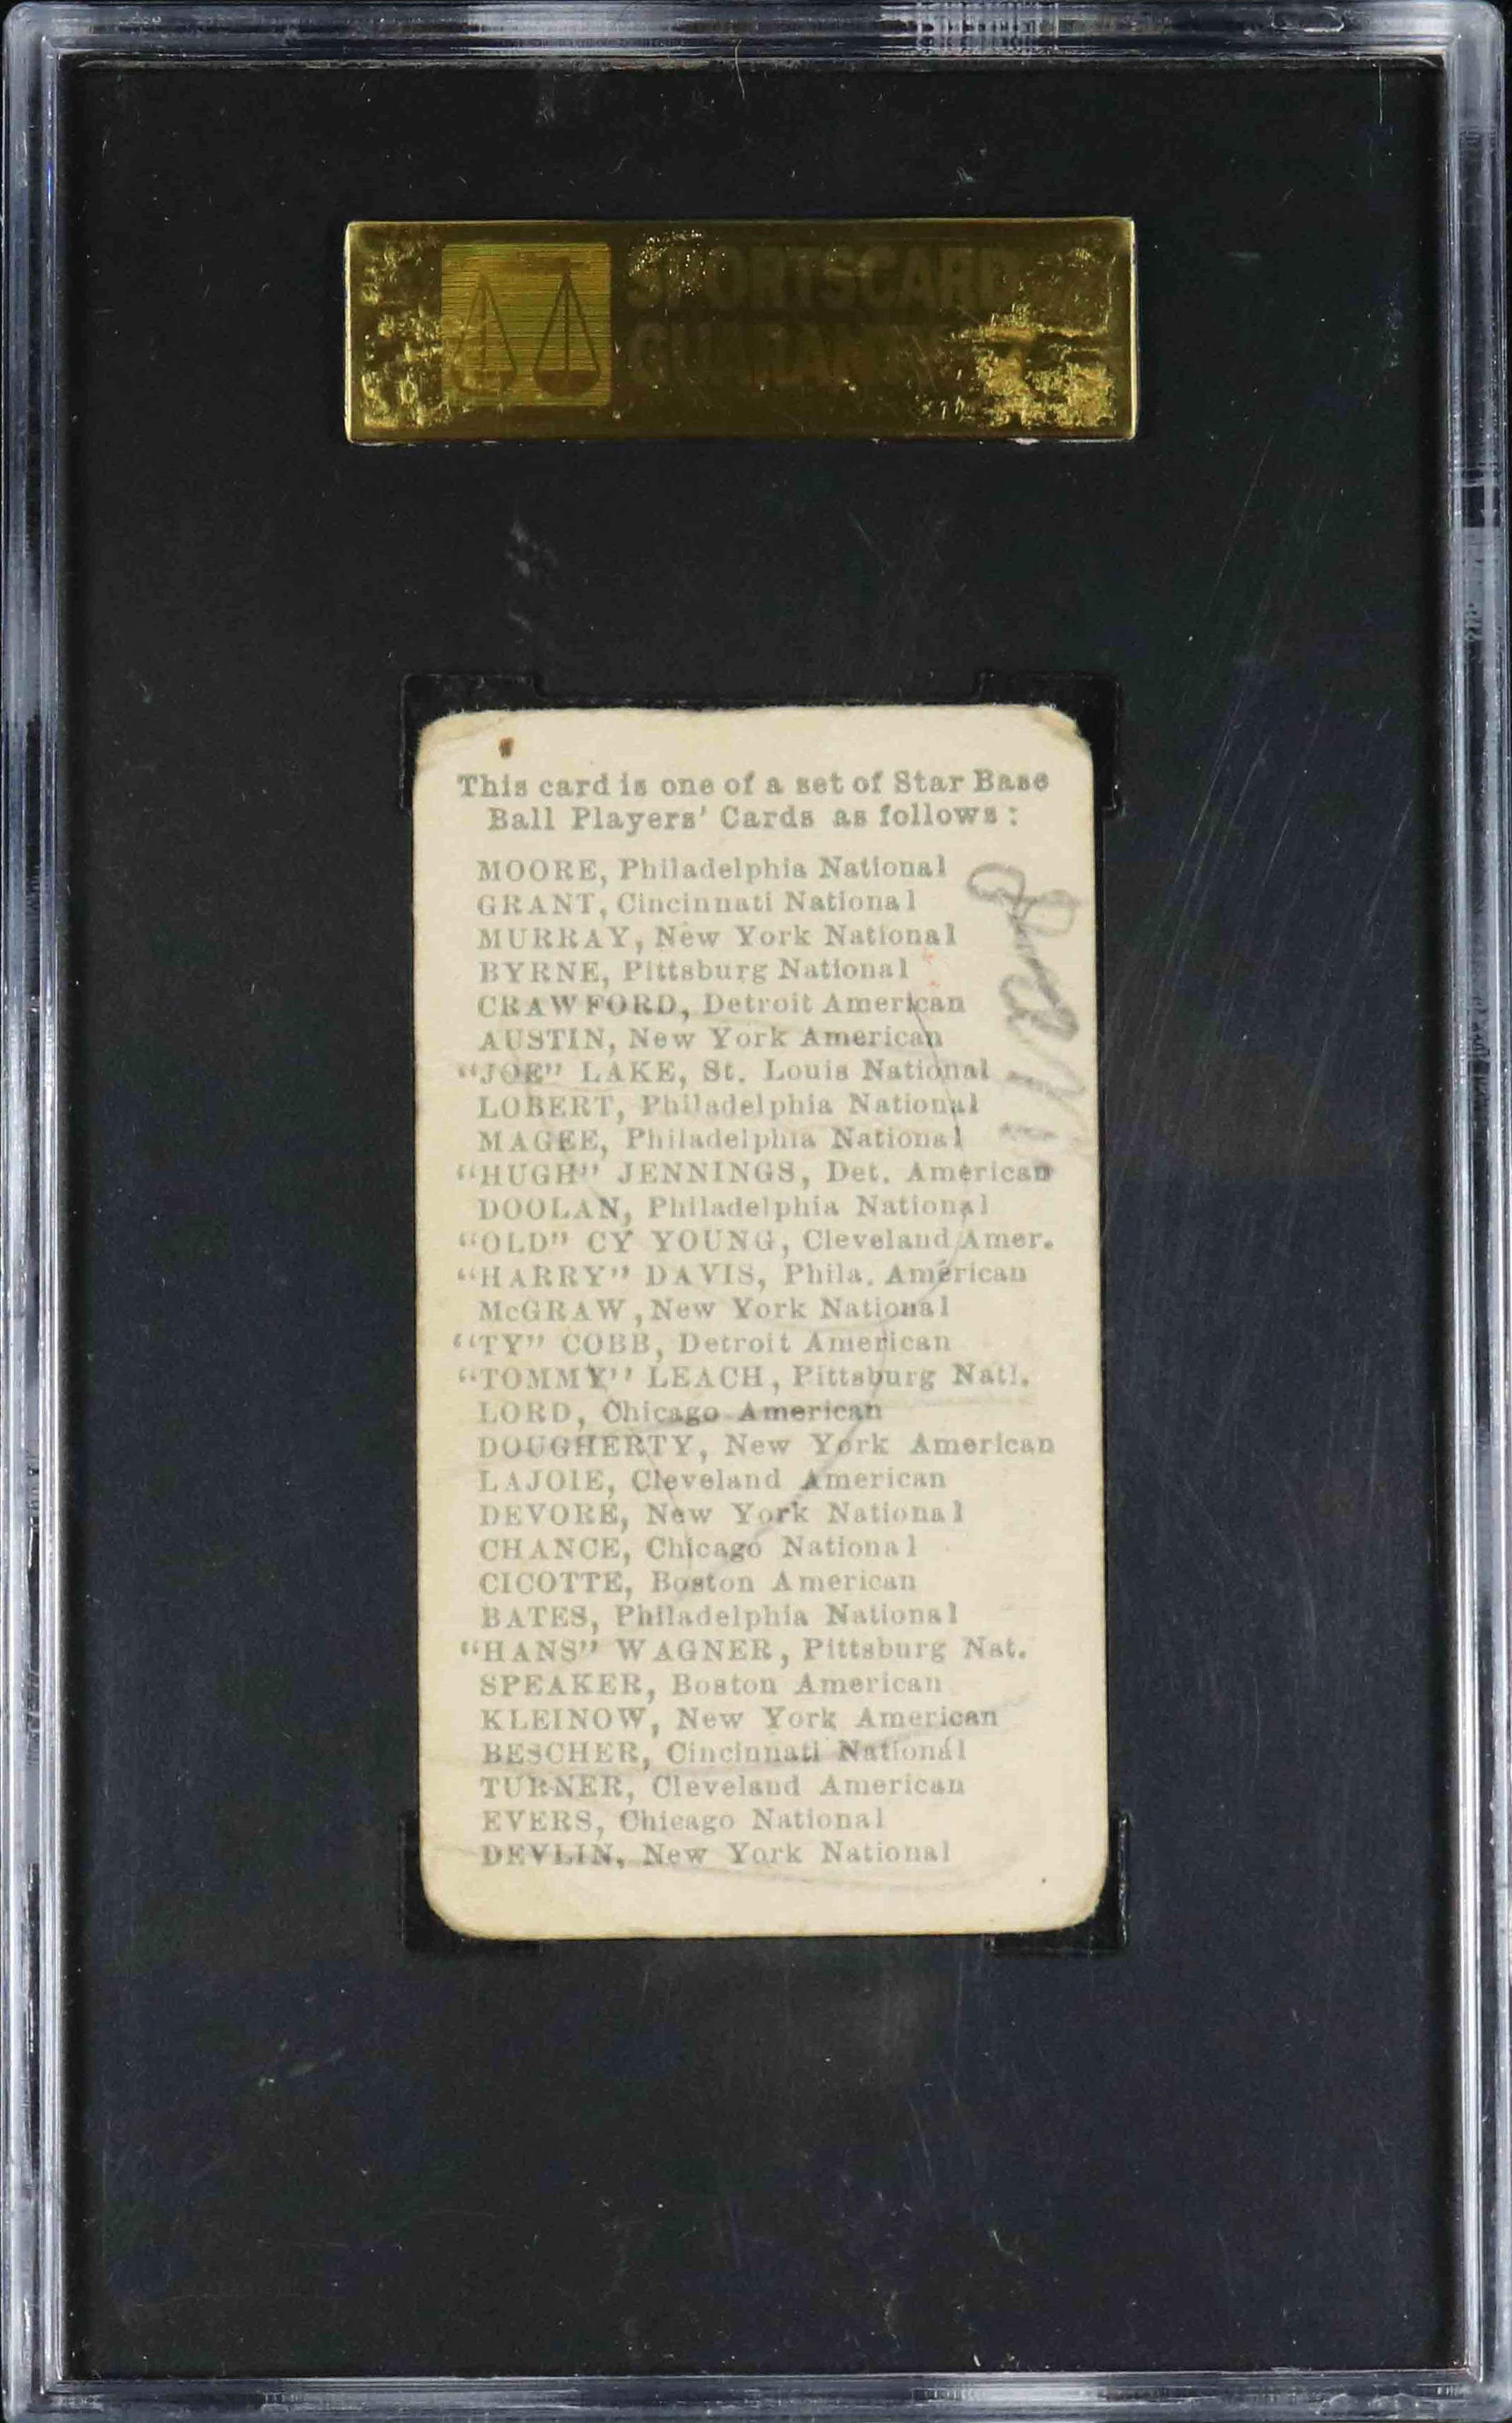 SPORTSCARD
GUARANTY
This card is one of a set of Star Base
Ball Players' Cards as follows:
MOORE, Philadelphia National
GRANT, Cincinnati National
MURRAY, New York National
BYRNE, Pittsburg National
CRAWFORD, Detroit American
AUSTIN, New York American
“JOE” LAKE, St. Louis National
LOBERT, Philadelphia National
MAGEE, Philadelphia National
“HUGH” JENNINGS, Det. American
DOOLAN, Philadelphia National
“OLD” CY YOUNG, Cleveland Amer.
“HARRY” DAVIS, Phila. American
McGRAW, New York National
“TY” COBB, Detroit American
“TOMMY” LEACH, Pittsburg Natl.
LORD, Chicago American
DOUGHERTY, New York American
LAJOIE, Cleveland American
DEVORE, New York National
CHANCE, Chicago National
CICOTTE, Boston American
BATES, Philadelphia National
“HANS” WAGNER, Pittsburg Nat.
SPEAKER, Boston American
KLEINOW, New York American
BESCHER, Cincinnati National
TURNER, Cleveland American
EVERS, Chicago National
DEVLIN, New York National